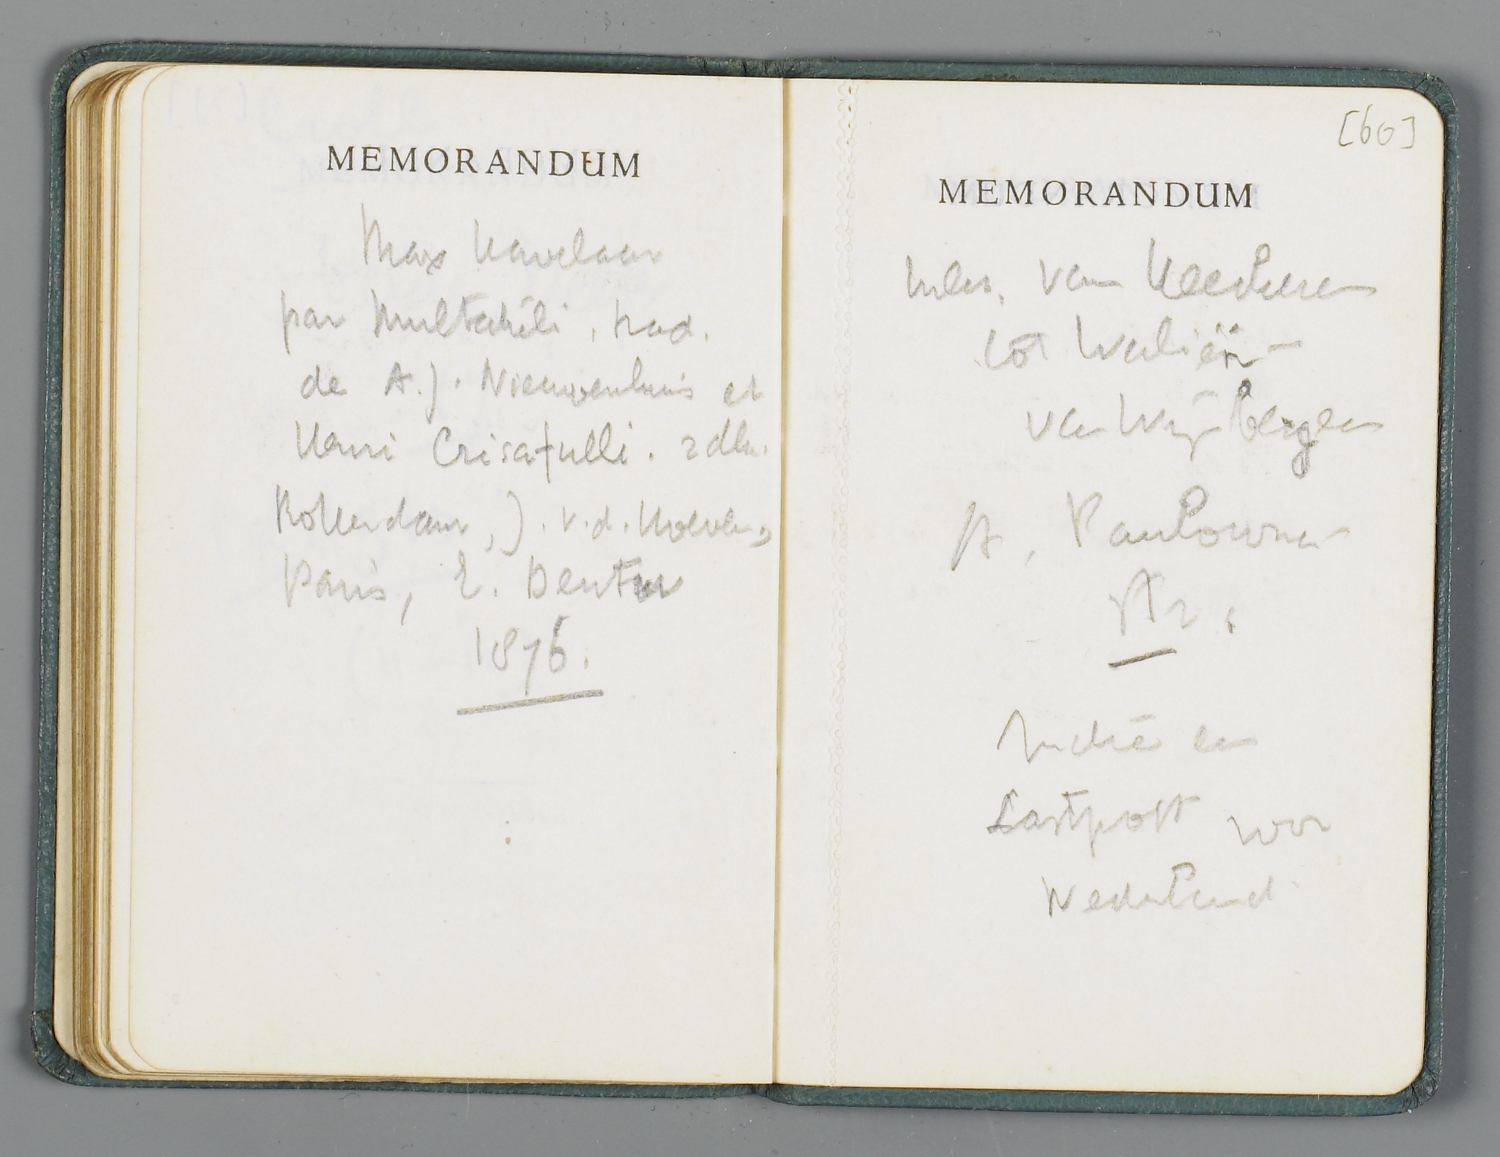 MEMORANDUM
Max Havelaar
par Multatuli, trad.
de A.J. Nieuwenhuis et
Henri Crisafulli. 2 dln.
Rotterdam, J. v.d. Hoeven,
Paris, E. Dentu
1876.
[60]
MEMORANDUM
van Heeckeren
tot Waliën-
van Wijnbergen
A. Paulowna
en
Lastpost voor
Nederland